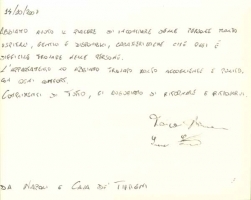 24/10/2007
ABBIAMO AVUTO IL PIACERE DI INCONTRARE DELLE PERSONE MOLTO
GENTILI E DISPONIBILI, CARATTERISTICHE CHE OGGI È
DIFFICILE TROVARE NELLE PERSONE.
L'APPARTAMENTO LO ABBIAMO TROVATO MOLTO ACCOGLIENTE E PULITO,
CON OGNI COMFORT.
COMPLIMENTI DI TUTTO, CI AUGURIAMO DI RITORNARE E RITROVARVI.
DA NAPOLI E CAVA DE' TIRRENI